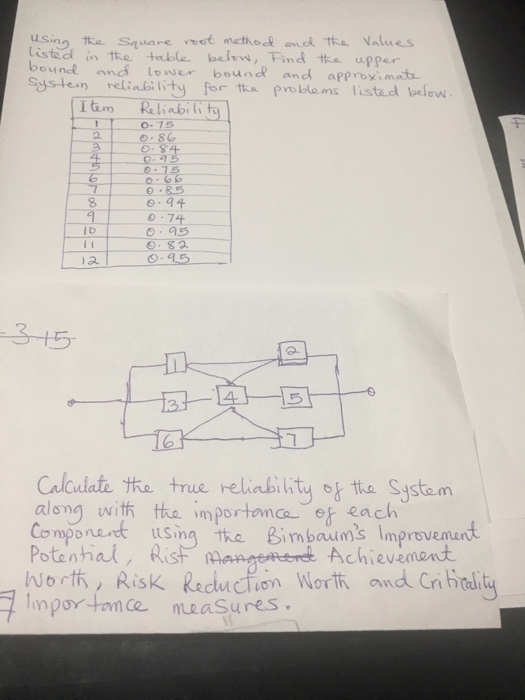 Using the Square root method and the Values
listed in the table below, Find the upper
bound and lower bound and approximate
System reliability for the problems listed below.
Item Reliability
1 0.75
2 0.86
3 0.84
4 0.95
5 0.75
6 0.66
7 0.85
8 0.94
9 0.74
10 0.95
11 0.82
12 0.95
3-15
1 2
3 4 5
6 7
Calculate the true reliability of the System
along with the importance of each
Component using the Birnbaum's Improvement
Potential, Rist Mangement Achievement
Worth, Risk Reduction Worth and Criticality
Importance measures.